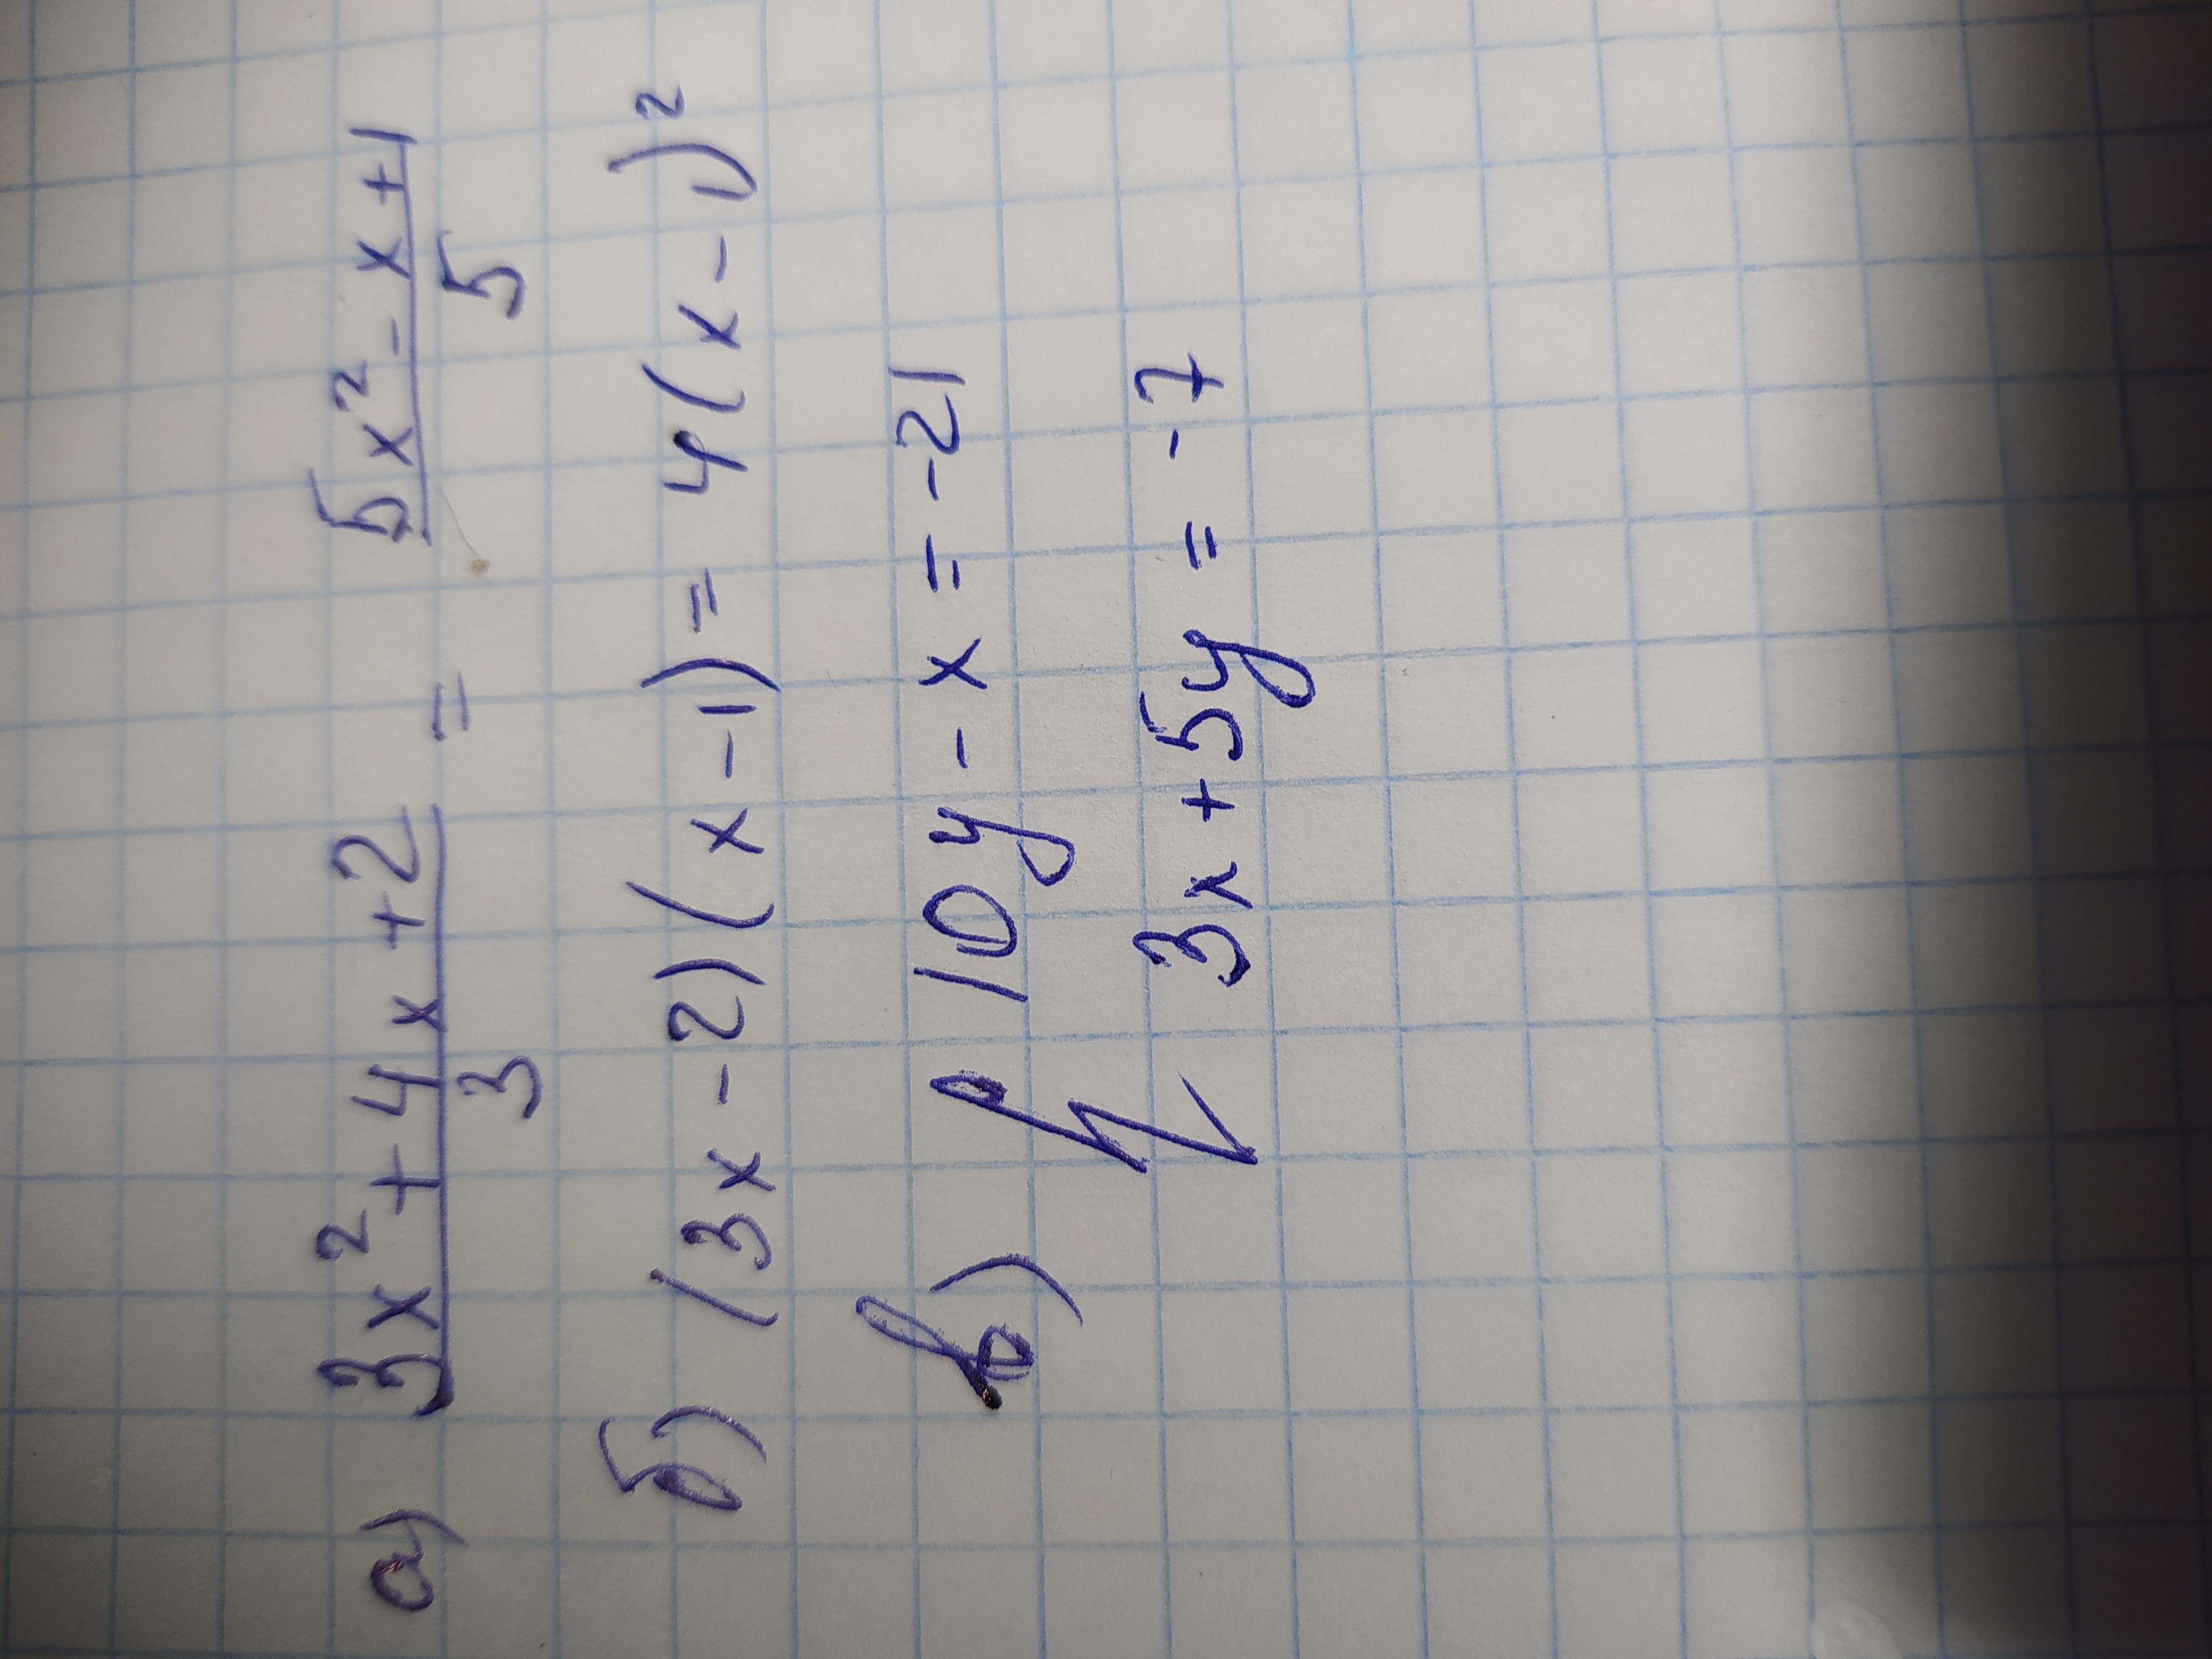 а) (3x² + 4x + 2)/3 = (5x² - x + 1)/5
б) (3x - 2)(x - 1) = 4(x - 1)²
в) { 10y - x = -21
3x + 5y = -7